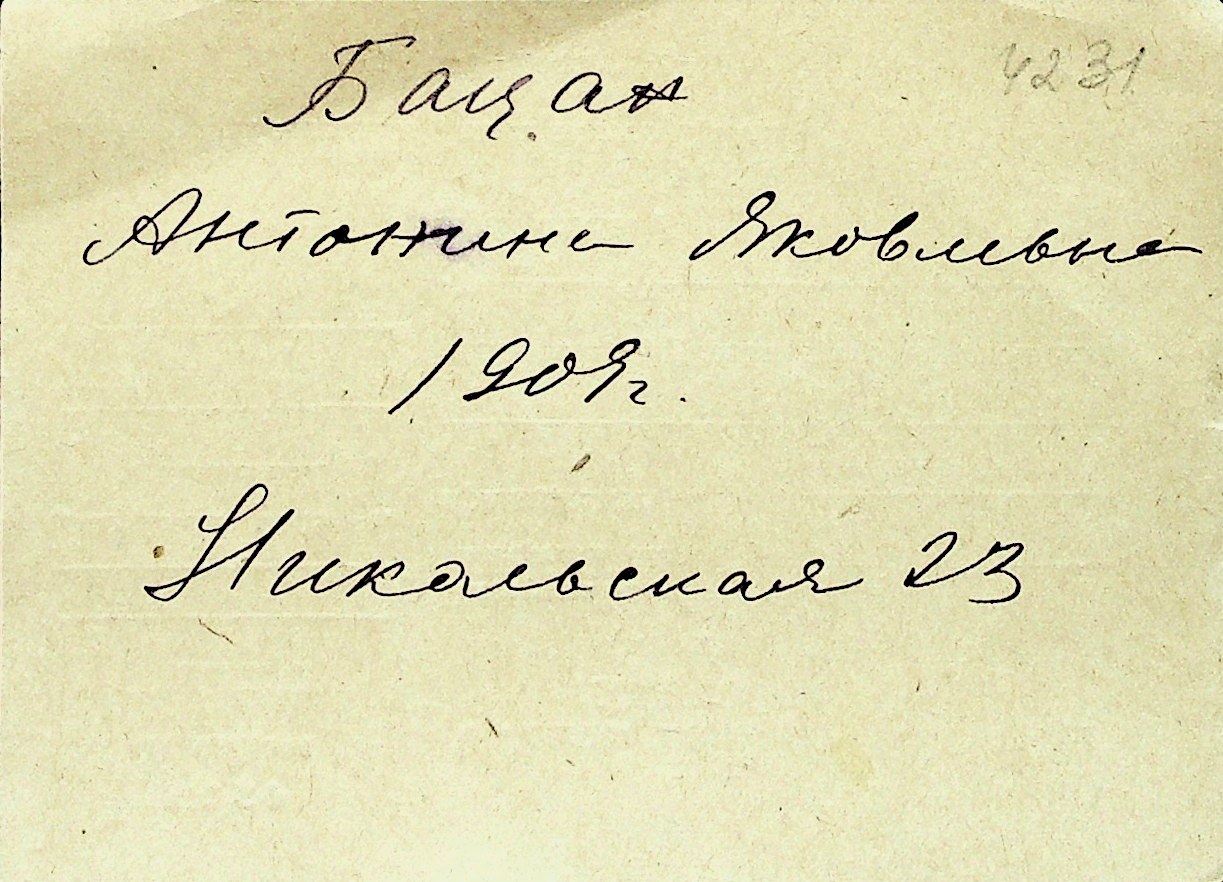 Бацан 4231
Антонина Яковлевна
1909г.
Никольская 23